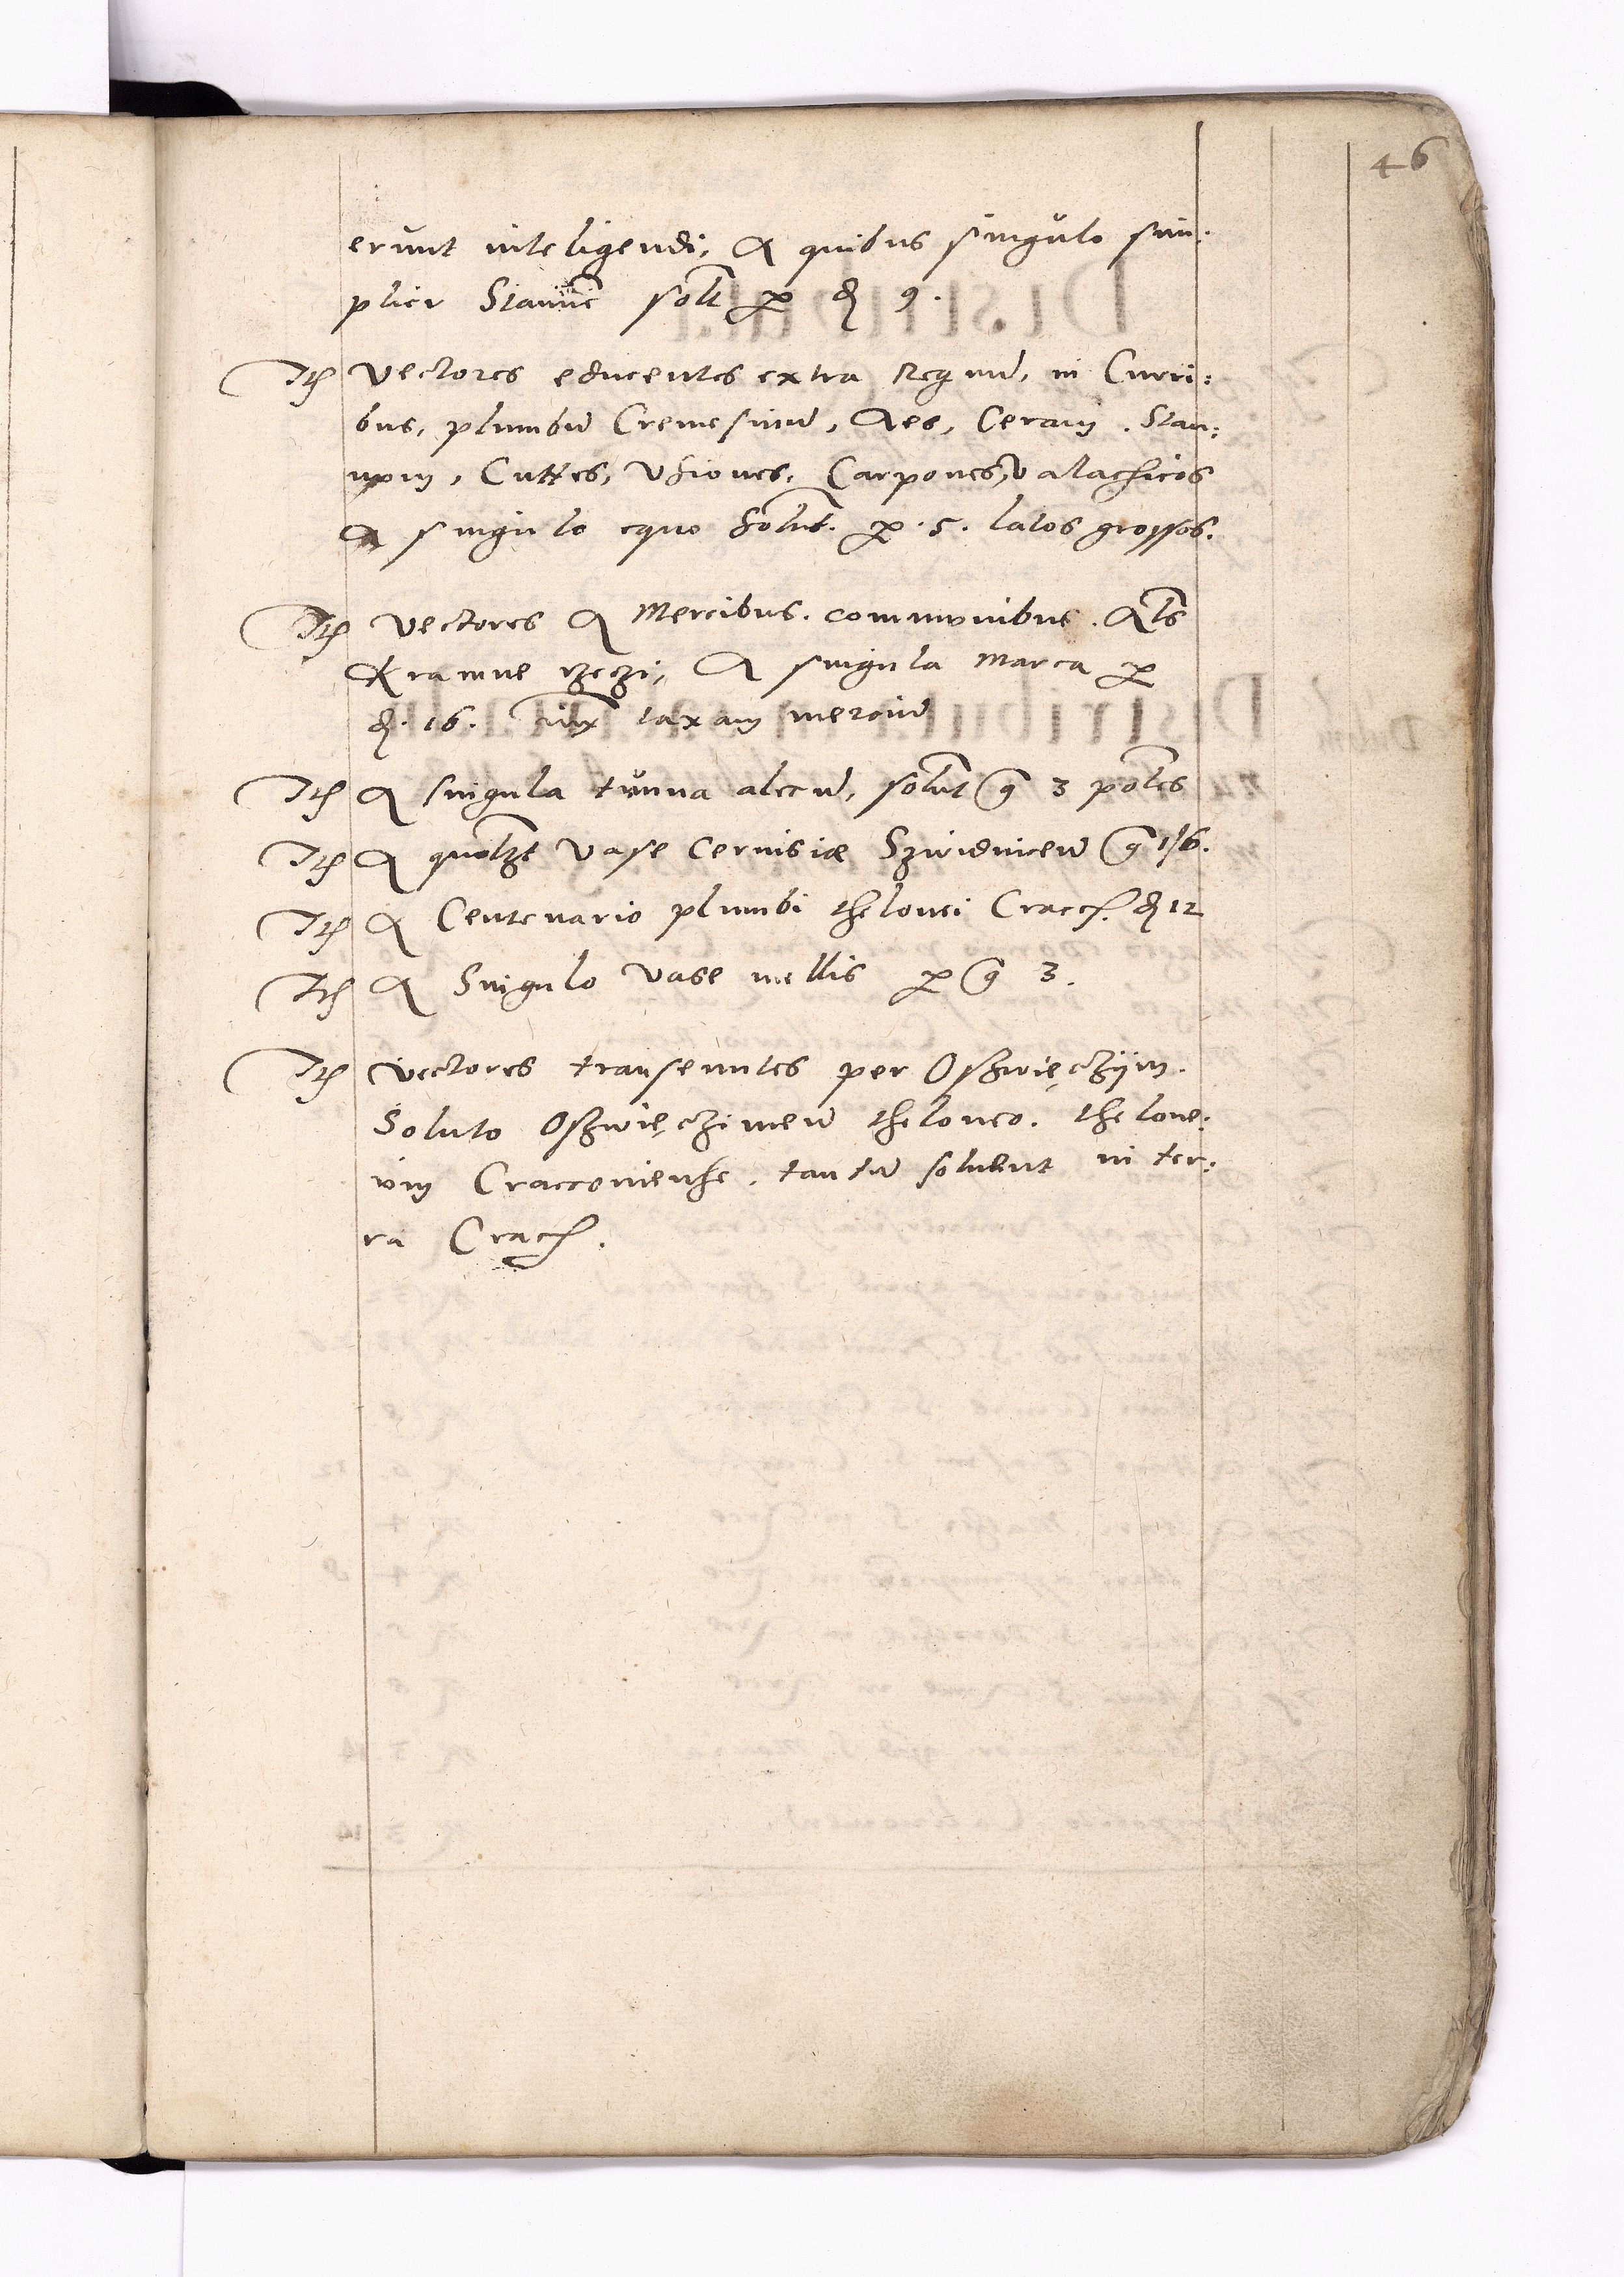 46
erunt inteligendi, A quibus singulo sim:
plicr Stamine solt per d 9.
Itm Vectores educentes extra Regnum, in Curri:
bus, plumbum Cremesinum, Aes, Ceram. Stan:
num, Cuttes, Vsiones, Carpones, Valachicos
A singulo equo Solut. per .5. latos grossos.
Itm Vectores A Mercibus. communibus. Als
Kramne rzeczi, A singula Marca per
d. 16. iux taxam mercium
Itm A singula tunna alecum, solut g 3 poltes
Itm A quolzt Vase Cervisiae Szwidnicen g 1/6.
Itm A Centenario plumbi thelonei Cracch. d 12
Itm A Singulo Vase mellis per g 3.
Itm Vectores transeuntes per Oszwięczijm.
Soluto Oszwięczimen theloneo. thelone:
um Cracconiense. tantum soluent in ter:
ra Crach.